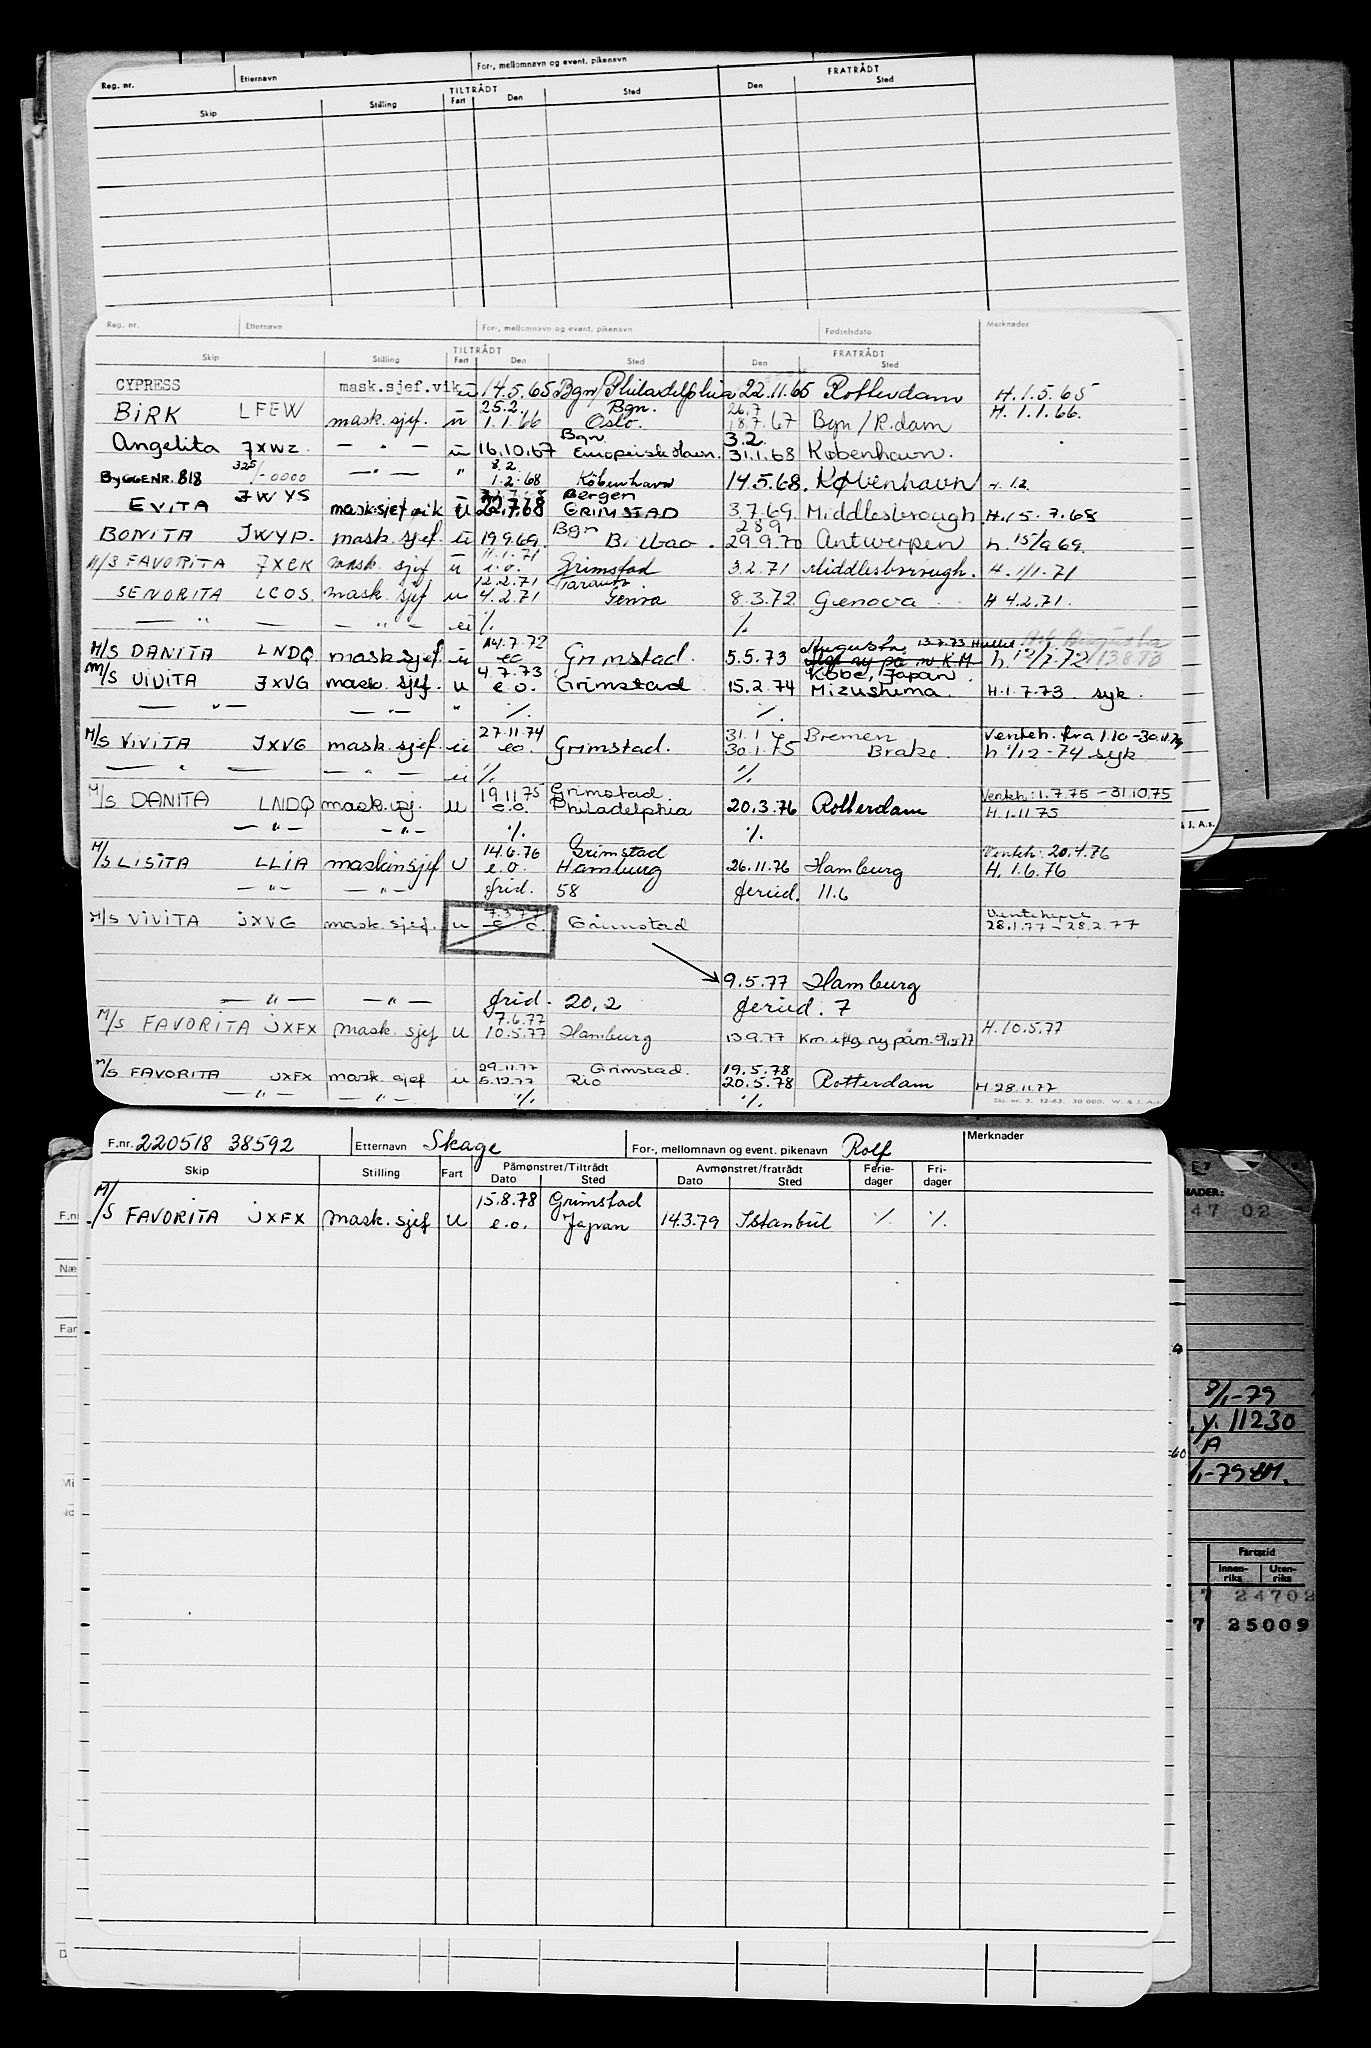 Reg. nr. Etternavn For-, mellomnavn og event. pikenavn
TILTRÅDT FRATRÅDT
Skip Stilling Fart Den Sted Den Sted
Reg. nr. Etternavn For-, mellomnavn og event. pikenavn Fødselsdato Merknader
TILTRÅDT FRATRÅDT
Skip Stilling Fart Den Sted Den Sted
CYPRESS mask.sjef.vik u 14.5.65 Bgn/Philadelphia 22.11.65 Rotterdam H.1.5.65
25.2. Bgn. 26.7
BIRK LFEW mask. sjef. u 1.1.66 Oslo. 18.7.67 Bgn/R.dam H.1.1.66.
Bgn 3.2.
Angelita JXWZ — " — u 16.10.67 Europeisk Havn. 31.1.68 København.
8.2.
BYGGENR. 818 325/-0000 — " — " 1.2.68 København 14.5.68. København H.1.2
Bergen
EVITA JWYS mask.sjef vik u 22.7.68 GRIMSTAD 3.7.69. Middlesbrough H.15.7.68
Bgn 28.9
BONITA JWYP. mask. sjef. u 19.9.69. Bilbao. 29.9.70 Antwerpen h. 15/9 69.
11.1.71
M/S FAVORITA JXCK mask. sjef u e.o. Grimstad 3.2.71 Middlesborough. H. 1/1-71
12.2.71 Taranto
SENORITA LCOS. mask. sjef u 4.2.71 Genoa 8.3.72 Genova H 4.2.71.
— " — — " — u % %
14.7.72 Augusta 13.7.73
M/S DANITA LNDQ mask.sjef. u eo Grimstad. 5.5.73 h 12/7-72
4.7.73 Kobe, Japan.
M/S VIVITA JXVG mask. sjef. u e.o. Grimstad 15.2.74 Mizushima. H.1.7.73 syk.
— " — — " — " % %
27.11.74 Bremen Venteh. fra 1.10-30.11.74
M/S VIVITA JXVG mask. sjef. u eo. Grimstad. 30.1.75 Brake. h 1/12-74 syk
— " — — " — u % %
19.11.75 Grimstad. Venteh: 1.7.75 - 31.10.75
M/S DANITA LNDQ mask. sj. u e.o. Philadelphia 20.3.76 Rotterdam H.1.11.75
— " — — " — % %
14.6.76 Grimstad Venteh: 20.4.76
M/S LISITA LLIA maskinsjef U e.o. Hamburg 26.11.76 Hamburg H. 1.6.76
— " — — " — frid. 58 feried. 11.6
7.3.77
M/S VIVITA JXVG mask. sjef. u e o. Grimstad 28.1.77 - 28.2.77
9.5.77 Hamburg
— " — — " — frid. 20,2 feried. 7
7.6.77
M/S FAVORITA JXFX mask. sjef U 10.5.77 Hamburg 13.9.77 H.10.5.77
29.11.77 Grimstad. 19.5.78
M/S FAVORITA JXFX mask. sjef u 5.12.77 Rio 20.5.78 Rotterdam H 28.11.77
— " — — " — % %
Skj. nr. 3. 12-63. 30 000. W. & J. A.s
& J. A.s.
F.nr. 220518 38592 Etternavn Skage For-, mellomnavn og event. pikenavn Rolf Merknader
Skip Stilling Fart Påmønstret/Tiltrådt Avmønstret/fratrådt Ferie-dager Fri-dager
Dato Sted Dato Sted
15.8.78 Grimstad
M/S FAVORITA JXFX Mask. sjef U e.o. Japan 14.3.79 Istanbul % %
F.nr
Næ
Far
47 02
8/1-79
.y. 11230
A
60
/1-79
Fartstid
Innen-riks Uten-riks
17 24702
7 25009